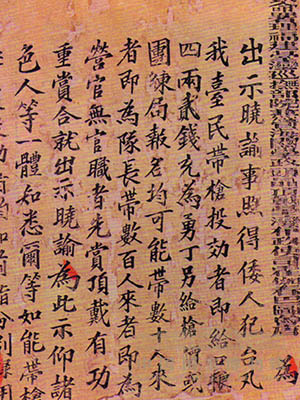 為
出示曉諭事照得倭人犯台凡
我臺民帶槍投效者即給口糧
四兩貳錢充為勇丁另給槍價或
團練局報名均可能帶數十人來
者即為隊長帶數百人來者即為
營官無官職者先賞頂戴有功
重賞合就出示曉諭為此示仰諸
色人等一體知悉爾等如能帶槍